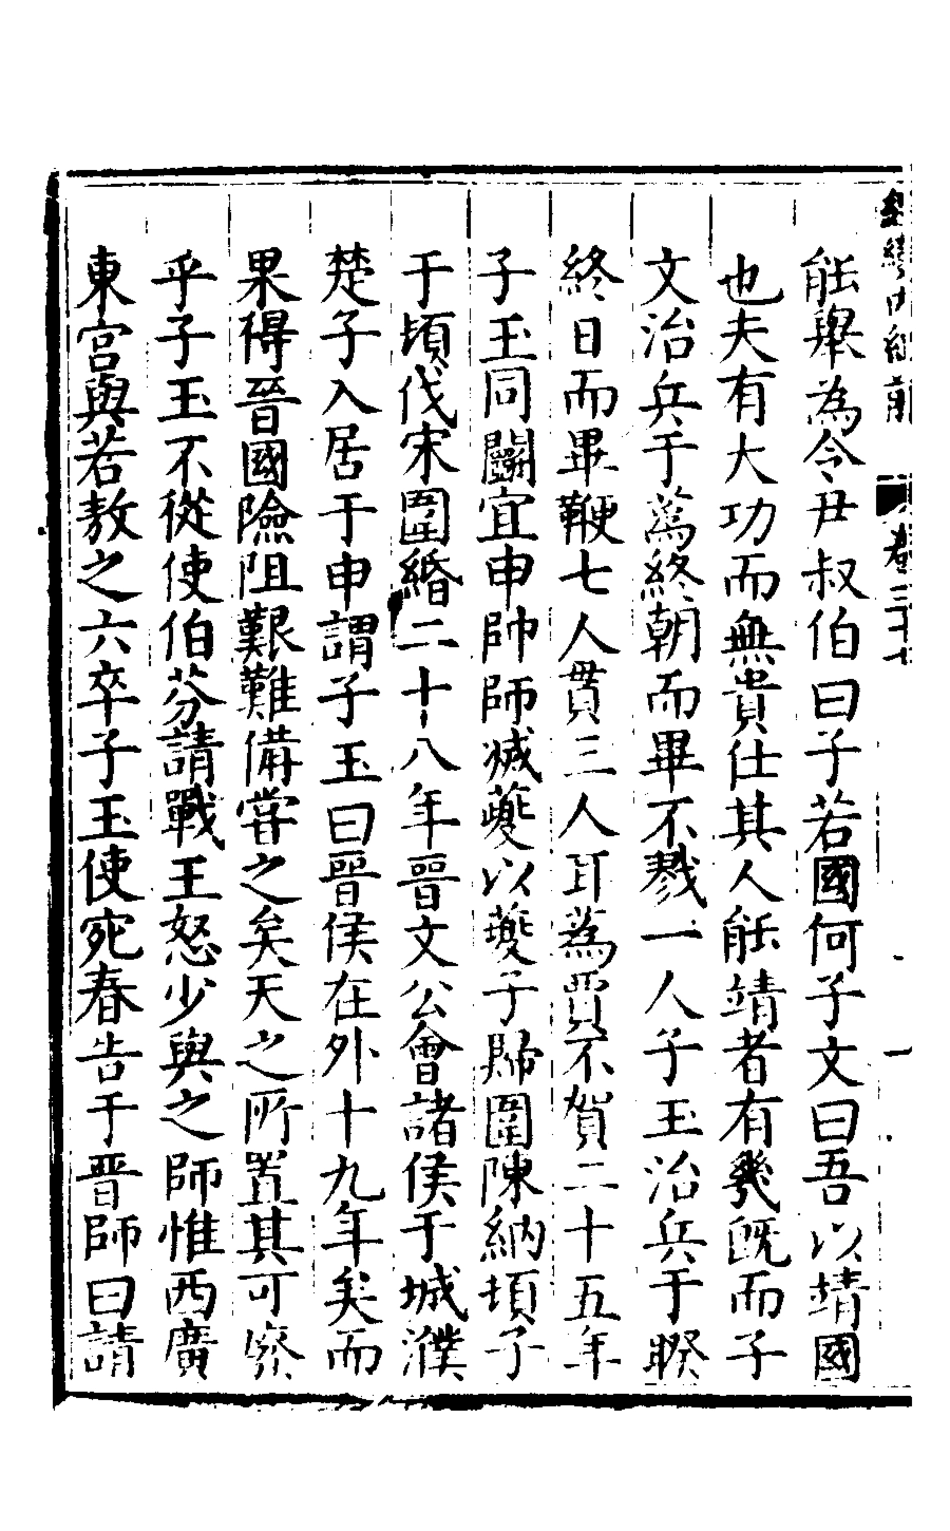 能舉為令尹叔伯曰子若國何子文曰吾以靖國
也夫有大功而無貴仕其人能靖者有幾既而子
文治兵于蔿終朝而畢不戮一人子玉治兵于睽
終日而畢鞭七人貫三人耳蔿賈不賀二十五年
子玉同鬬宜申帥師滅夔以夔子歸圍陳納頓子
于頓伐宋圍緡二十八年晉文公會諸侯于城濮
楚子入居于申謂子玉曰晉侯在外十九年矣而
果得晉國險阻艱難備嘗之矣天之所置其可廢
乎子玉不從使伯芬請戰王怒少與之師惟西廣
東宮與若敖之六卒子玉使宛春告于晉師曰請